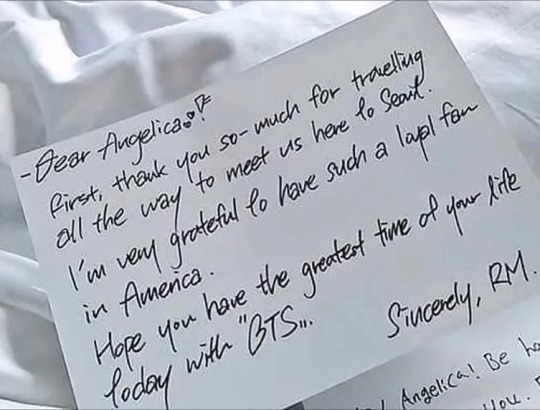 - Dear Angelica
First, thank you so-much for travelling
all the way to meet us here to Seoul.
I'm very grateful to have such a loyal fan
in America.
Hope you have the greatest time of your life
today with "BTS...
Sincerely, RM.
Angelica! Be
you.